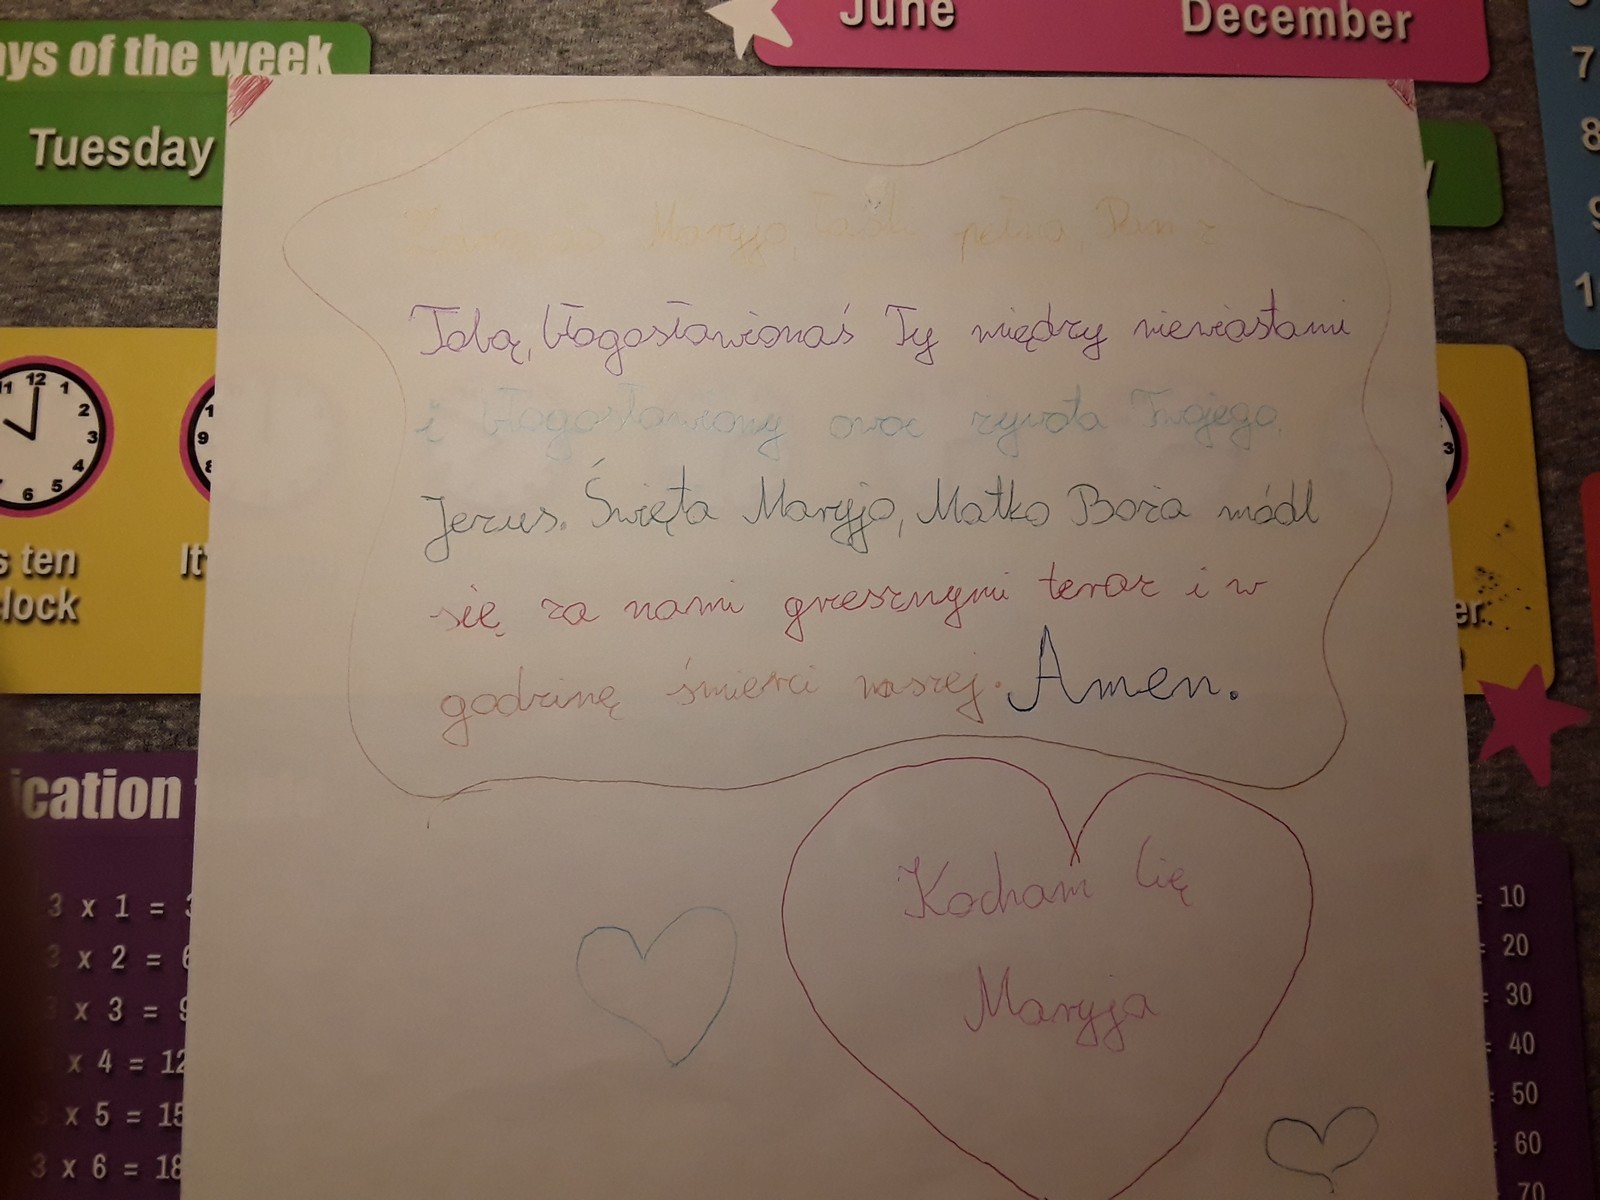 June December
ays of the week
Tuesday
7
8
9
1
Zdrowaś Maryjo, łaski pełna, Pan z
Tobą, błogosławionaś Ty między niewiastami
i błogosławiony owoc żywota Twojego,
Jezus. Święta Maryjo, Matko Boża módl
się za nami grzesznymi teraz i w
godzinę śmierci naszej. Amen.
Kocham Cię
Maryja
11 12 1
2
3
4
5
6
1
9
8
3
s ten
clock
It'
er
ication
3 x 1 = 3
3 x 2 = 6
x 3 = 9
x 4 = 12
x 5 = 15
3 x 6 = 18
= 10
= 20
= 30
= 40
= 50
= 60
70